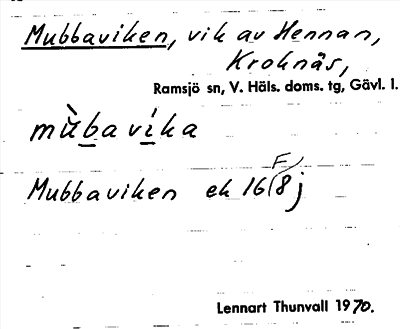 Mubbaviken, vik av Hennan,
Kroknäs,
Ramsjö sn, V. Häls. doms. tg, Gävl. l.
mùbavika
F
Mubbaviken ek 16 8 j
Lennart Thunvall 1970.